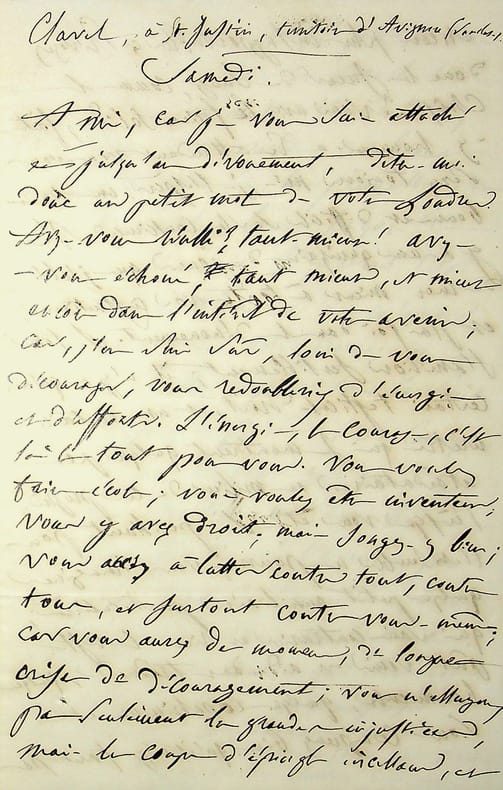 Clavel, à St. Justin, territoire d'Avignon (Vaucluse).
Samedi.
Ami, car je vous suis attaché
jusqu'au dévouement, dites-moi
donc un petit mot de votre
Avez-vous réussi? tant mieux! avez-
-vous échoué, tant mieux, et mieux
encore dans l'intérêt de votre avenir;
car, j'en suis sûr, loin de vous
décourager, vous redoublerez d'énergie
et d'efforts. L'énergie, le courage, c'est
là le tout pour vous. Vous voulez
faire école; vous voulez être inventeur,
vous y avez droit; mais songez-y bien;
vous avez à lutter contre tout, contre
tous, et surtout contre vous-même;
car vous aurez des momens, de longues
crises de découragement; vous n'essuyerez
pas seulement les grandes injustices,
mais les coups d'épingle incessans, et